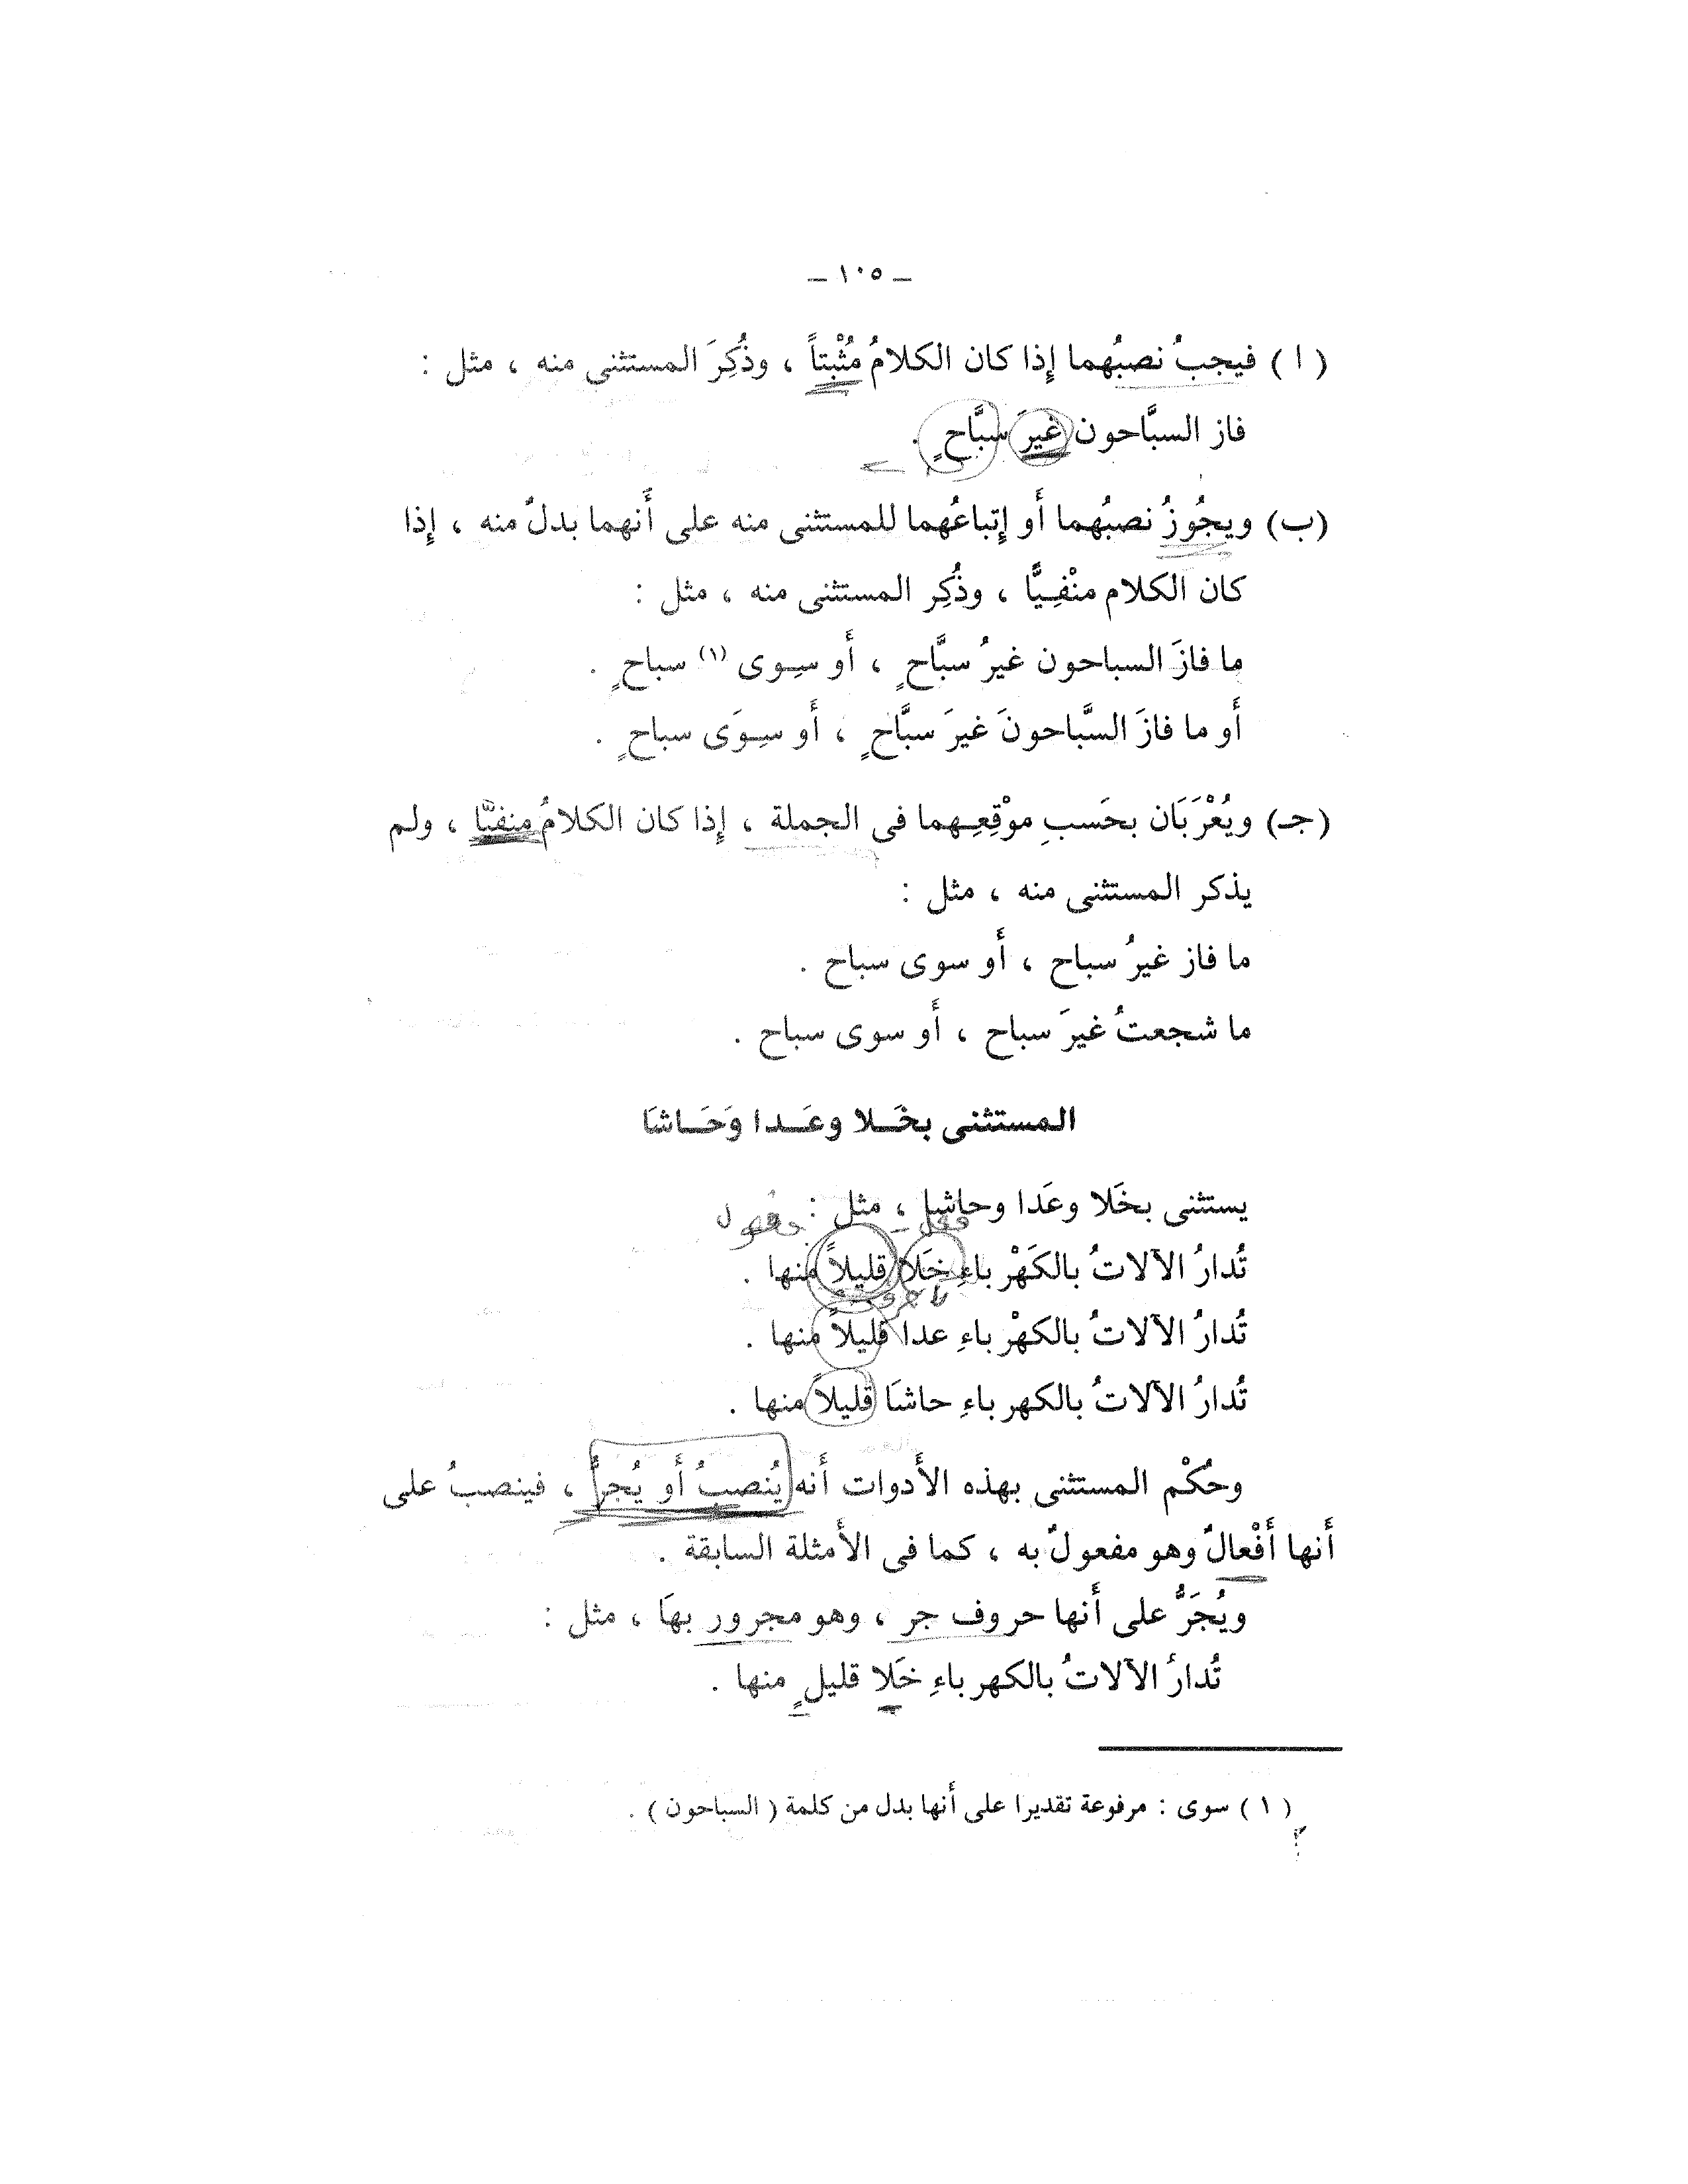 – ١٠٥ –
( ا ) فيجبُ نصبُهما إِذا كان الكلامُ مُثْبتاً ، وذُكِرَ المستثنى منه ، مثل :
فاز السبَّاحون غيرَ سبَّاحٍ .
(ب) ويجُوزُ نصبُهما أَو إِتباعُهما للمستثنى منه على أَنهما بدلٌ منه ، إِذا
كان الكلام منْفِيًّا ، وذُكِر المستثنى منه ، مثل :
ما فازَ السباحون غيرُ سبَّاحٍ ، أَو سِوى (١) سباحٍ .
أَو ما فازَ السَّباحونَ غيرَ سبَّاحٍ ، أَو سِوَى سباحٍ .
(جـ) ويُعْرَبَان بحَسبِ موْقِعِهما فى الجملة ، إِذا كان الكلامُ منفيًّا ، ولم
يذكر المستثنى منه ، مثل :
ما فاز غيرُ سباح ، أَو سوى سباح .
ما شجعتُ غيرَ سباح ، أَو سوى سباح .
المستثنى بخَلا وعَدا وَحَاشَا
يستثنى بخَلا وعَدا وحاشا ، مثل :
فعل مفعول
تُدارُ الآلاتُ بالكَهْرباءِ خَلا قليلاً منها .
تُدارُ الآلاتُ بالكهْرباءِ عدا قليلاً منها .
تُدارُ الآلاتُ بالكهرباءِ حاشَا قليلاً منها .
وحُكْم المستثنى بهذه الأَدوات أَنه يُنصبُ أَو يُجرُّ ، فينصبُ على
أَنها أَفْعالٌ وهو مفعولٌ به ، كما فى الأَمثلة السابقة .
ويُجَرُّ على أَنها حروف جر ، وهو مجرور بهَا ، مثل :
تُدارُ الآلاتُ بالكهرباءِ خَلا قليلٍ منها .
( ١ ) سوى : مرفوعة تقديرا على أَنها بدل من كلمة ( السباحون ) .